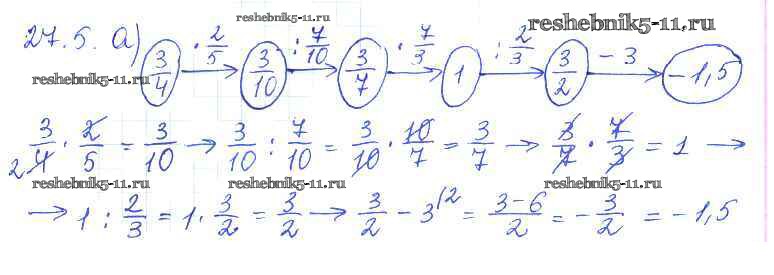 reshebnik5-11.ru reshebnik5-11.ru
27.5. а) 3/4 · 2/5 → 3/10 : 7/10 → 3/7 · 7/3 → 1 : 2/3 → 3/2 − 3 → −1,5
reshebnik5-11.ru reshebnik5-11.ru reshebnik5-11.ru
3/4 · 2/5 = 3/10 → 3/10 : 7/10 = 3/10 · 10/7 = 3/7 → 3/7 · 7/3 = 1 →
reshebnik5-11.ru reshebnik5-11.ru reshebnik5-11.ru
→ 1 : 2/3 = 1 · 3/2 = 3/2 → 3/2 − 3^(2 = (3−6)/2 = −3/2 = −1,5